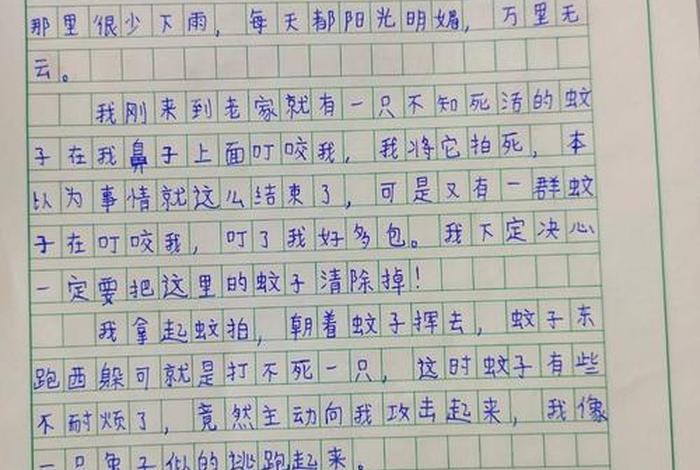 那里很少下雨，每天都阳光明媚，万里无
云。
我刚来到老家就有一只不知死活的蚊
子在我鼻子上面叮咬我，我将它拍死，本
以为事情就这么结束了，可是又有一群蚊
子在叮咬我，叮了我好多包。我下定决心
一定要把这里的蚊子清除掉！
我拿起蚊拍，朝着蚊子挥去，蚊子东
跑西躲可就是打不死一只，这时蚊子有些
不耐烦了，竟然主动向我攻击起来，我像
一只兔子似的逃跑起来。